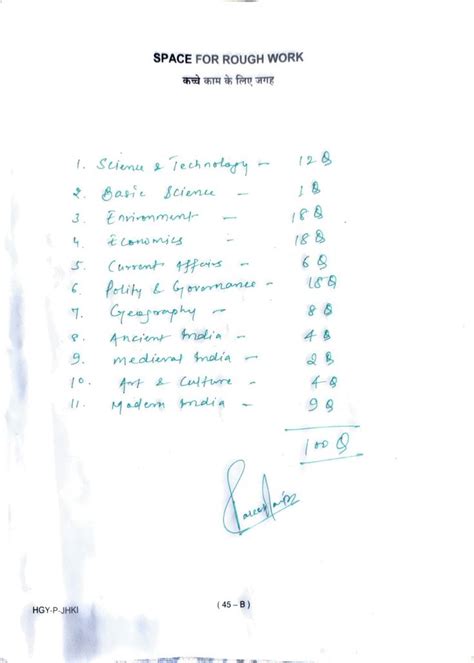 SPACE FOR ROUGH WORK
कच्चे काम के लिए जगह
1. Science & Technology - 12 Q
2. Basic Science - 1 Q
3. Environment - 18 Q
4. Economics - 18 Q
5. Current Affairs - 6 Q
6. Polity & Governance - 18 Q
7. Geography - 8 Q
8. Ancient India - 4 Q
9. Medieval India - 2 Q
10. Art & Culture - 4 Q
11. Modern India - 9 Q
100 Q
HGY-P-JHKI
( 45 – B )